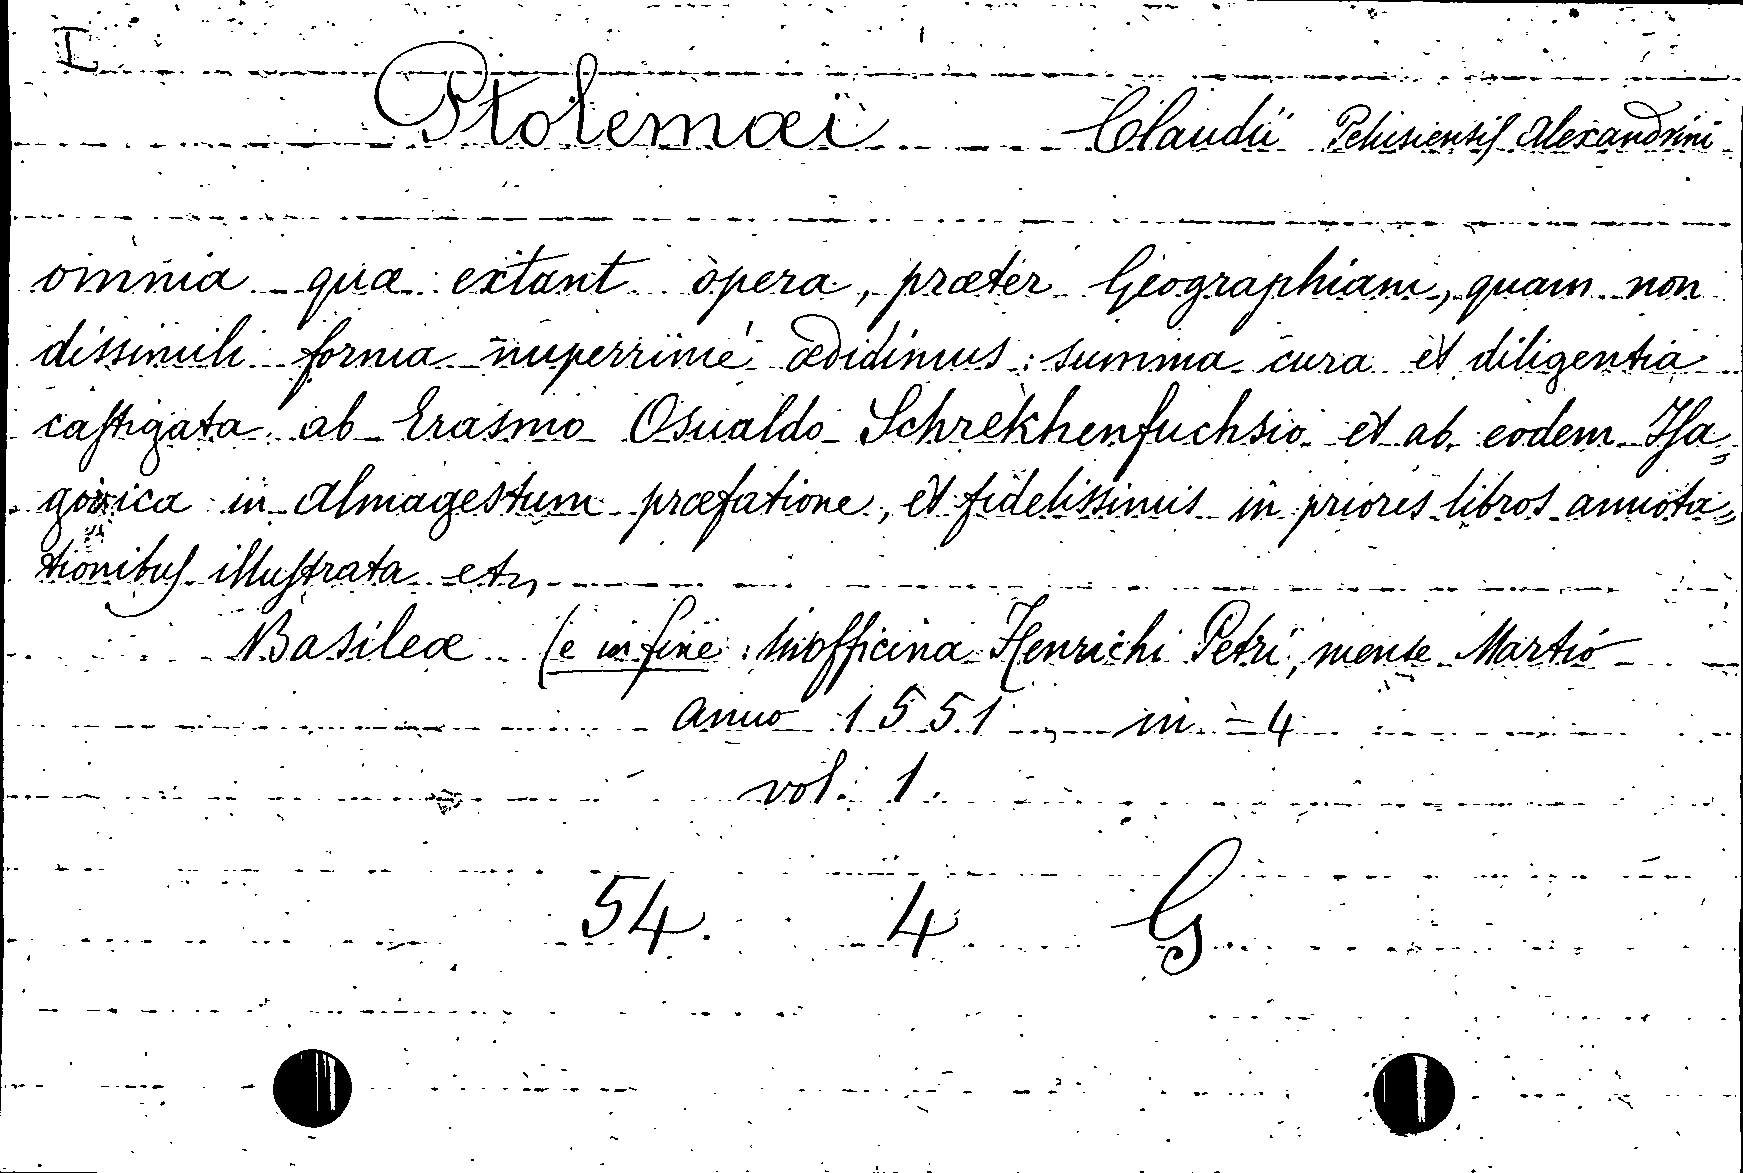 I
Ptolemæi Claudii Pelusiensis Alexandrini
omnia quæ extant opera, præter Geographiam, quam non
dissimili forma nuperrimé ædidimus: summa cura et diligentia
castigata ab Erasmo Osualdo Schrekhenfuchsio et ab eodem Isa„
gogica in Almagestum præfatione, et fidelissimis in priores libros annota„
tionibus illustrata etc,
Basileæ (e in fine: In officina Henrichi Petri, mense Martio
Anno 1551 in = 4
vol. 1.
54. 4 G